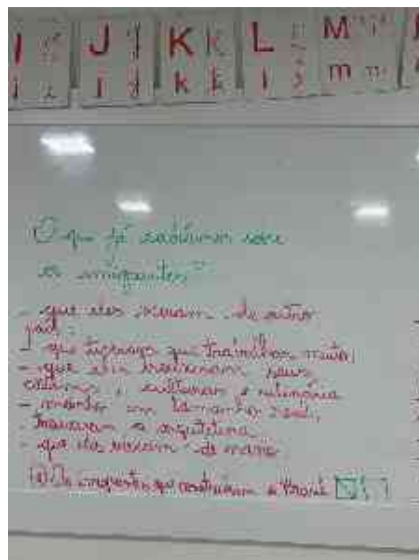 I J K L M
i j k l m
O que já sabíamos sobre
os imigrantes?
- que eles vieram de outro
país;
- que tiveram que trabalhar muito;
- que eles trouxeram seus
costumes, culturas e culinária
- manter um tamanho real,
trouxeram a arquitetura
- que eles vieram de navio.
Os imigrantes que construíram o Paraná